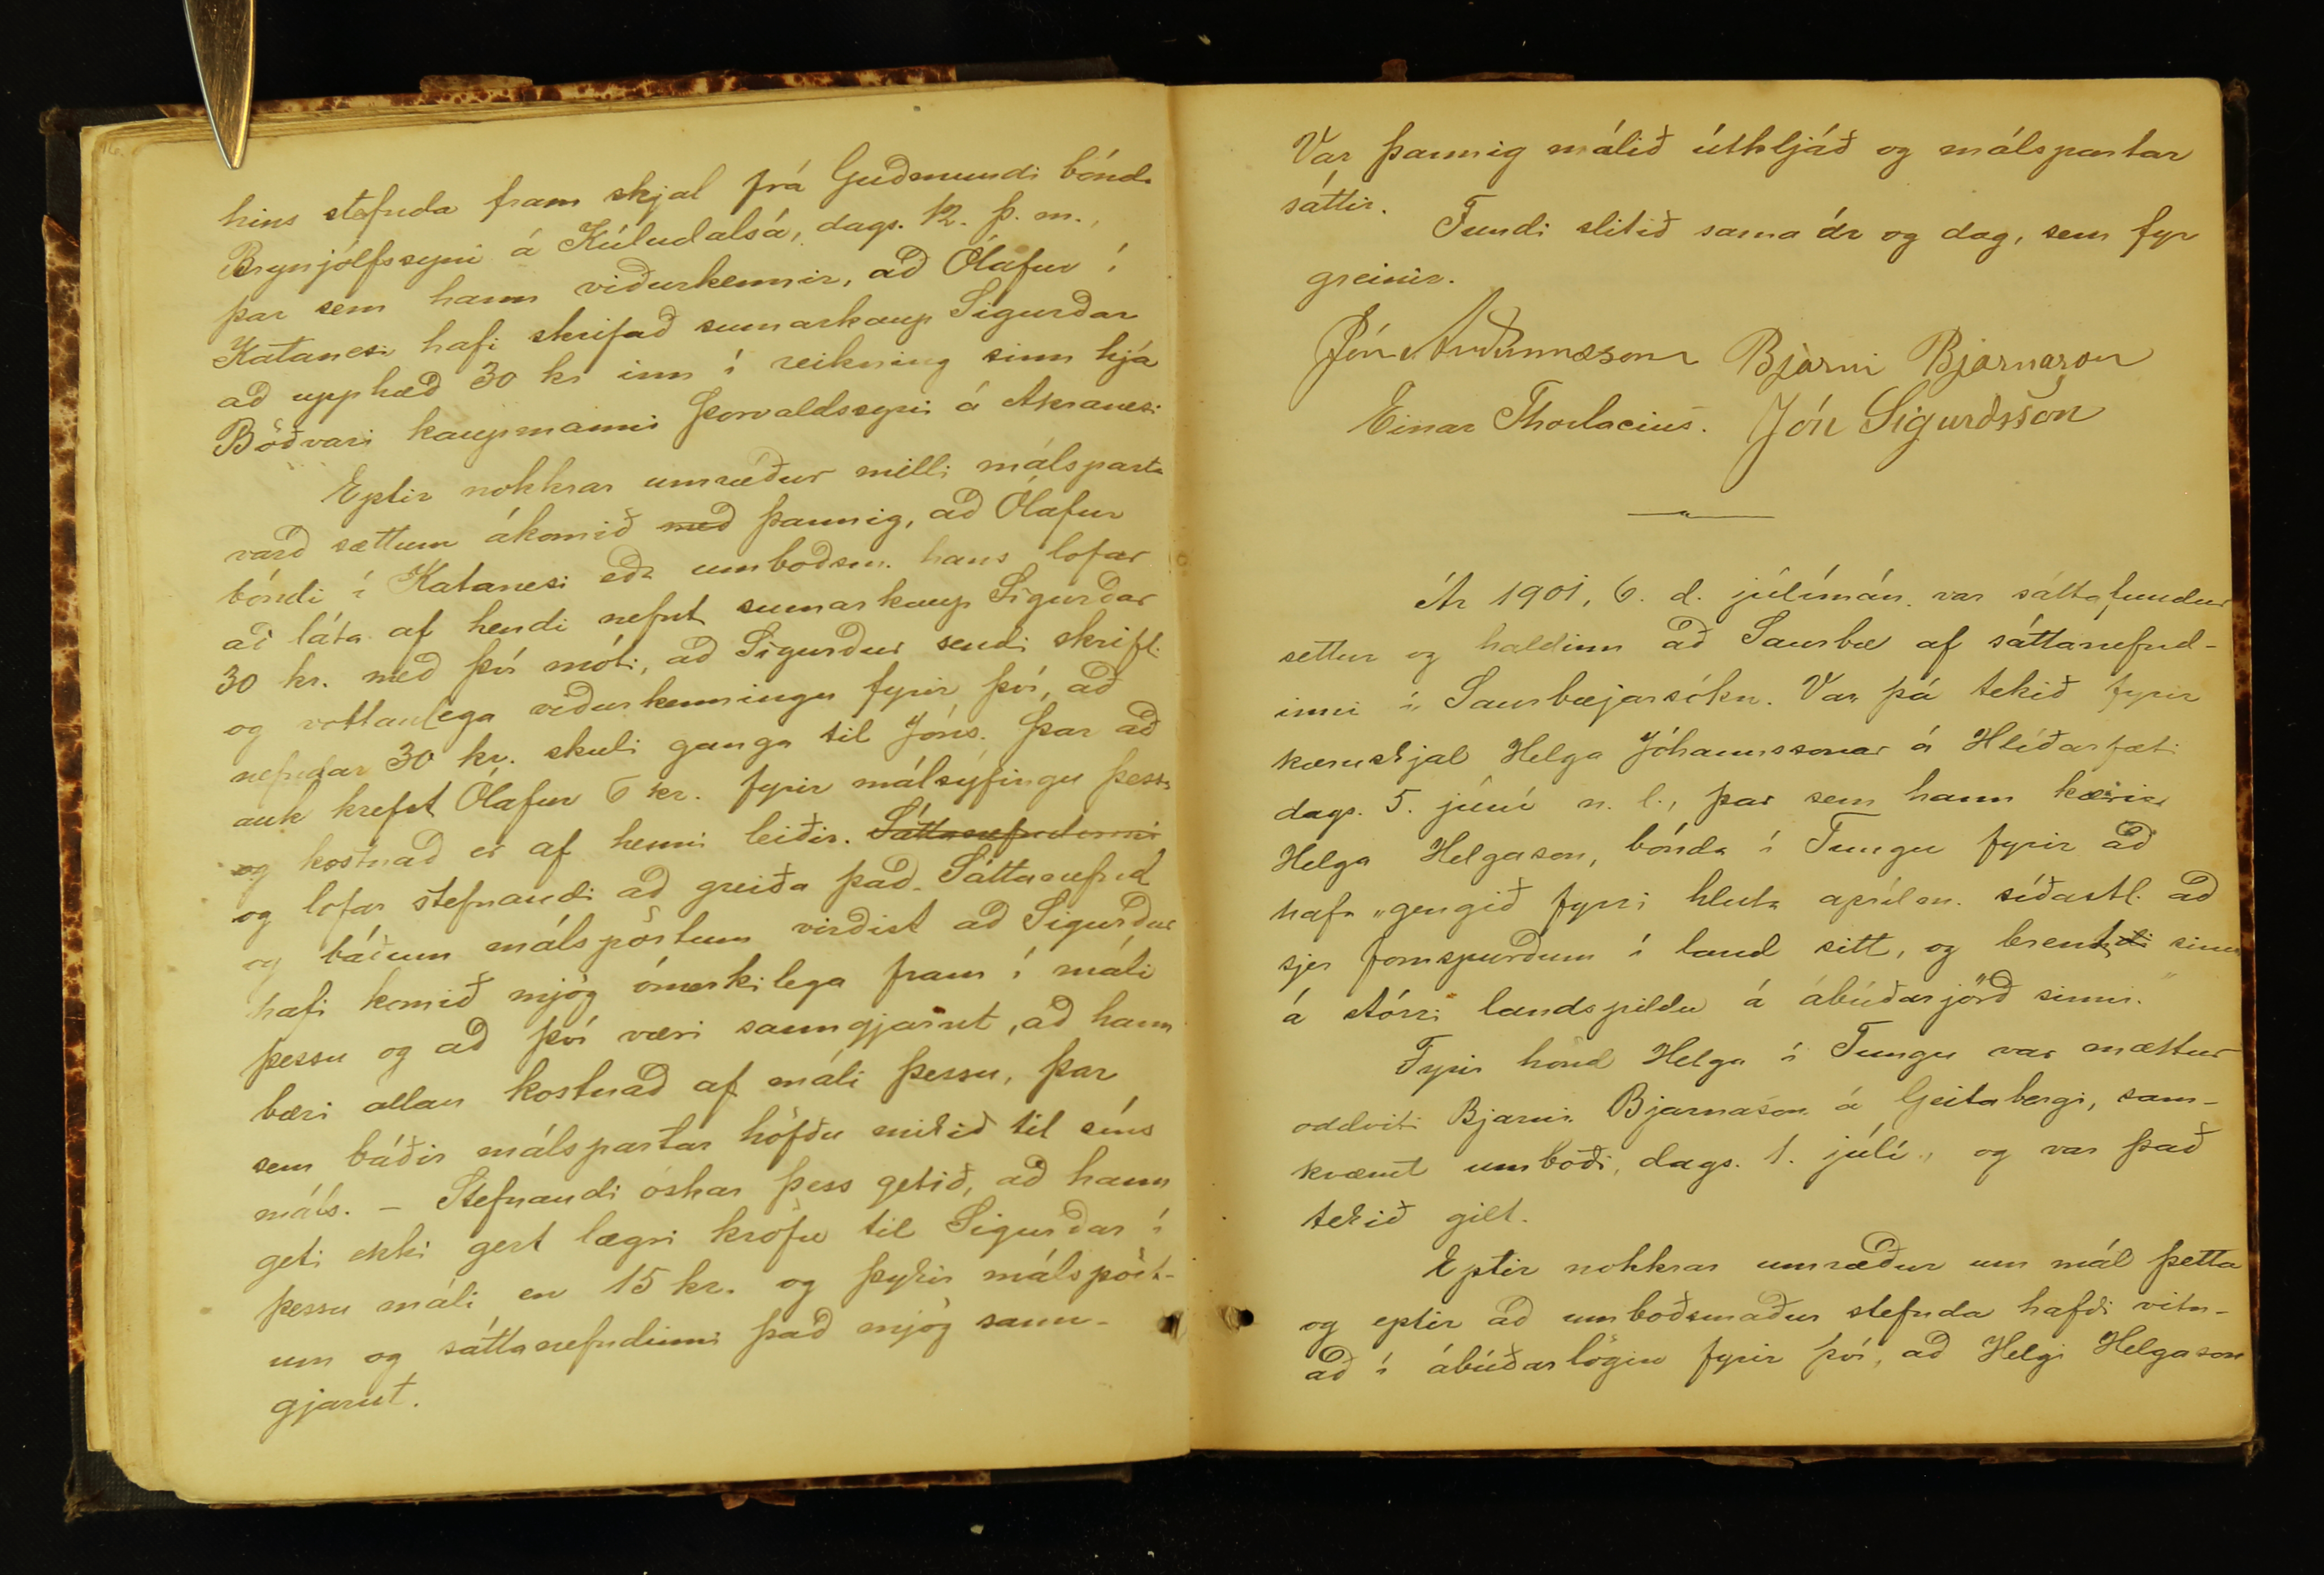 16.
hins stefnda fram skjal frá Guðmundi bónda
Brynjólfssyni á Kúludalsá, dags. 12. þ. m.,
þar sem hann viðurkennir, að Ólafur í
Katanesi hafi skrifað sumarkaup Sigurðar
að upphæð 30 kr inn í reikning sinn hjá
Böðvari kaupmanni Þorvaldssyni á Akranesi
Eptir nokkrar umræður milli málsparta
varð sættum ákomið með þannig, að Ólafur
bóndi í Katanesi eða umboðsm. hans lofar
að láta af hendi nefnt sumarkaup Sigurðar
30 kr. með því móti, að Sigurður sendi skrifl.
og vottanlega viðurkenningu fyrir því, að
nefndar 30 kr. skuli ganga til Jóns. Þar að
auk krefst Ólafur 6 kr. fyrir málsýfingu þessa
og kostnað er af henni leiðir. Sáttanefndinni
og lofar stefnandi að greiða það. Sáttanefnd
og báðum málspörtum virðist að Sigurður
hafi komið mjög ómerkilega fram í máli
þessu og að því væri sanngjarnt, að hann
bæri allan kostnað af máli þessu, þar
sem báðir málspartar höfðu mikið til síns
máls. - Stefnandi óskar þess getið, að hann
geti ekki gert lægri kröfu til Sigurðar í
þessu máli en 15 kr. og þykir málspört-
um og sáttanefndinni það mjög sann-
gjarnt.
Var þannig málið útkljáð og málspartar
sáttir.
Fundi slitið sama ár og dag, sem fyr
greinir.
Jón Auðunnsson Bjarni Bjarnason
Einar Thorlacius. Jón Sigurðsson
Ár 1901, 6. d. júlímán. var sáttafundur
settur og haldinn að Saurbæ af sáttanefnd-
inni í Saurbæjarsókn. Var þá tekið fyrir
kæruskjal Helga Jóhannssonar á Hlíðarfæti
dags. 5. júní n. l., þar sem hann kærir
Helga Helgason, bónda í Tungu fyrir að
hafa „gengið fyrri hluta aprílm. síðastl. að
sjer fornspurðum í land sitt, og brent sinu
á stórri landspildu á ábúðarjörð sinni."
Fyrir hönd Helga í Tungu var mættur
oddviti Bjarni Bjarnason á Geitabergi, sam-
kvæmt umboði, dags. 1. júlí, og var það
tekið gilt.
Eptir nokkrar umræður um mál þetta
og eptir að umboðsmaður stefnda hafði vitn-
að í ábúðarlögin fyrir því, að Helgi Helgason